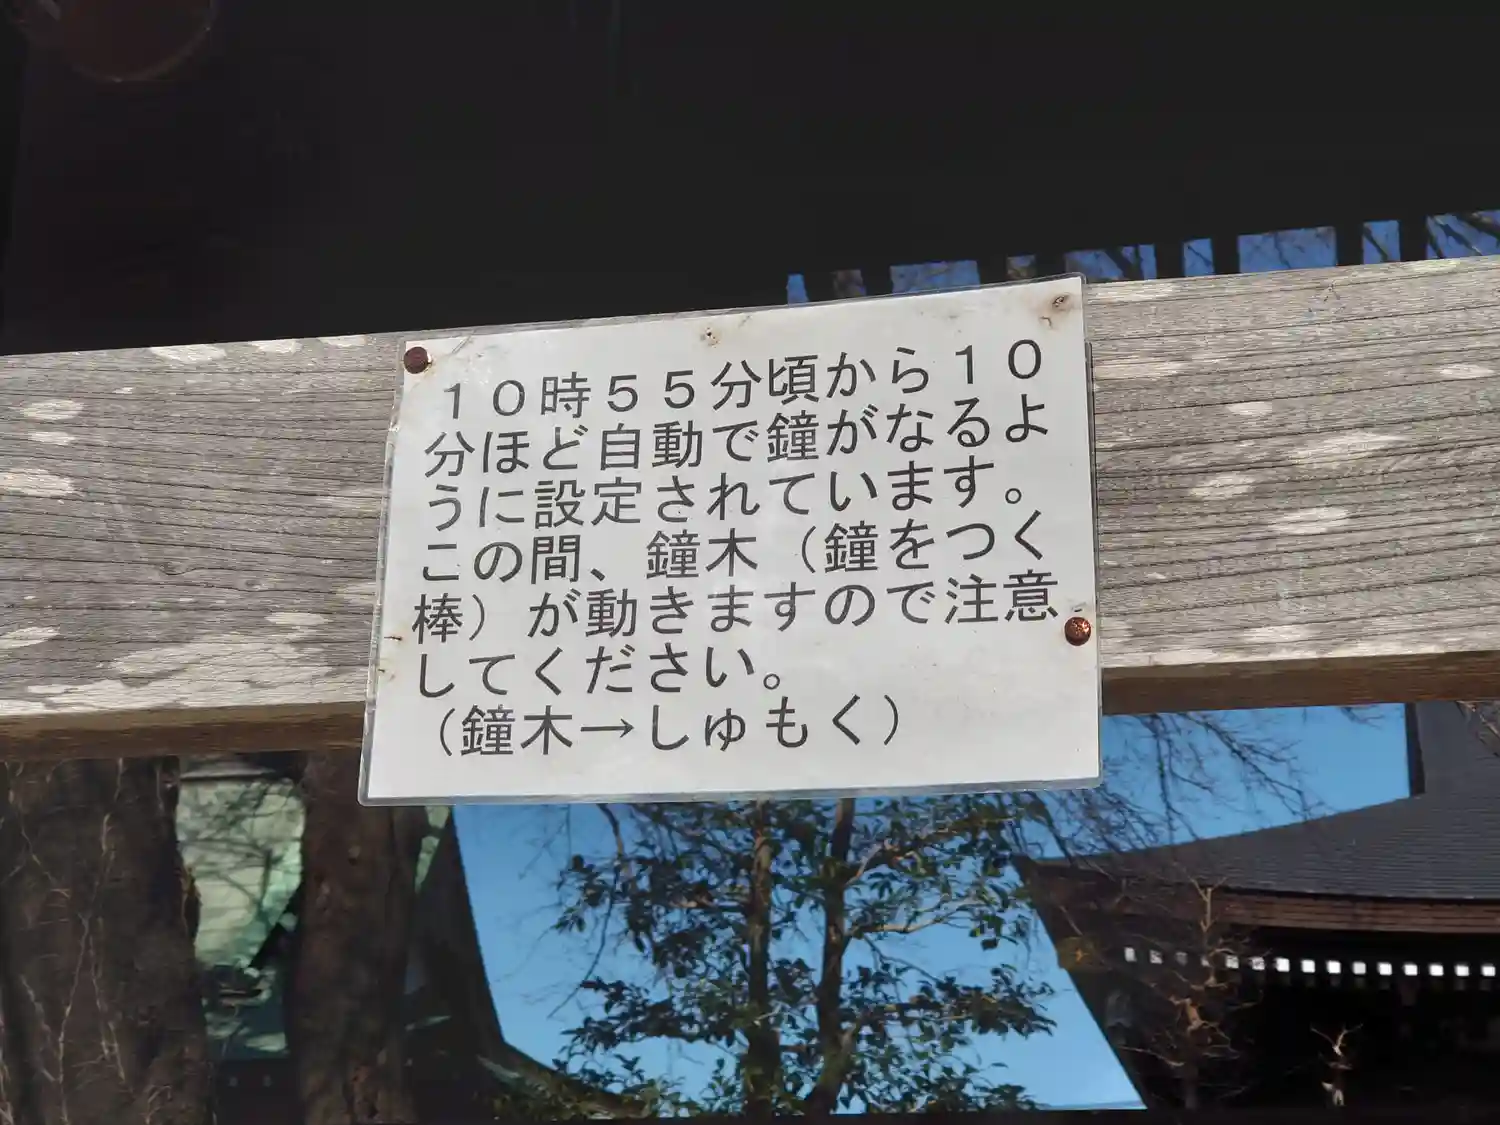 １０時５５分頃から１０
分ほど自動で鐘がなるよ
うに設定されています。
この間、鐘木（鐘をつく
棒）が動きますので注意
してください。
（鐘木→しゅもく）